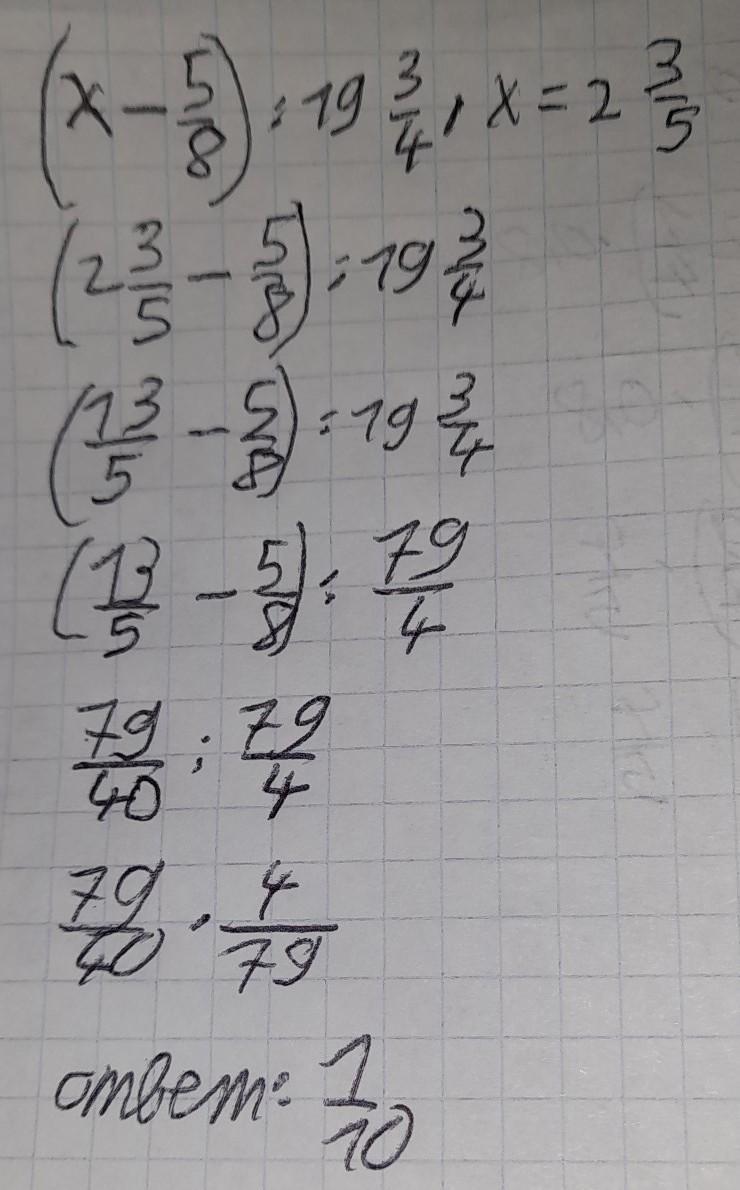 (x - 5/8) : 19 3/4, x = 2 3/5
(2 3/5 - 5/8) : 19 3/4
(13/5 - 5/8) : 19 3/4
(13/5 - 5/8) : 79/4
79/40 : 79/4
79/40 · 4/79
ответ: 1/10